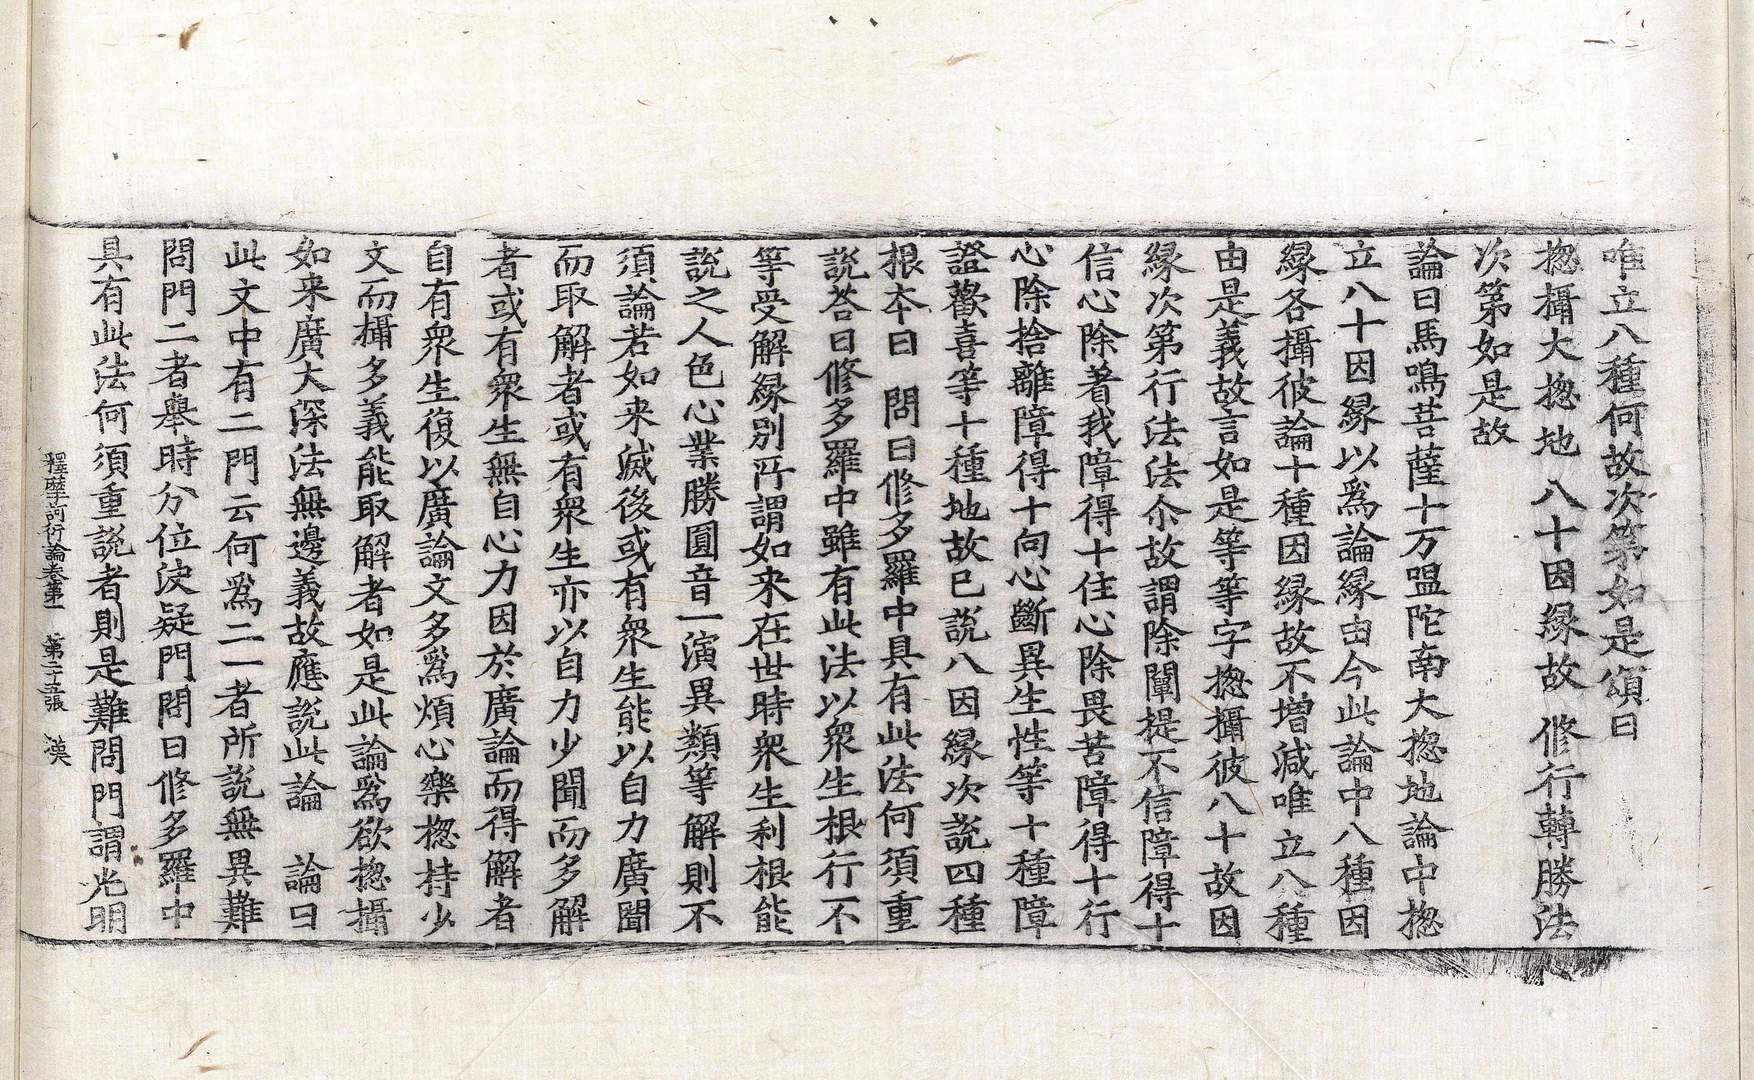 唯立八種何故次第如是頌曰
揔攝大揔地 八十因縁故 修行轉勝法
次第如是故
論曰馬鳴菩薩十万䁐陀南大揔地論中揔
立八十因縁以爲論縁由今此論中八種因
縁各攝彼論十種因縁故不増減唯立八種
由是義故言如是等等字揔攝彼八十故因
縁次第行法法尒故謂除闡提不信障得十
信心除著我障得十住心除畏苦障得十行
心除捨離障得十向心斷異生性等十種障
證歡喜等十種地故已說八因縁次說四種
根本曰 問曰修多羅中具有此法何須重
說荅曰修多羅中雖有此法以衆生根行不
等受解縁別所謂如来在世時衆生利根能
說之人色心業勝圓音一演異類等解則不
須論若如来滅後或有衆生能以自力廣聞
而取解者或有衆生亦以自力少聞而多解
者或有衆生無自心力因於廣論而得解者
自有衆生復以廣論文多爲煩心樂揔持少
文而攝多義能取解者如是此論爲欲揔攝
如来廣大深法無邊義故應說此論 論曰
此文中有二門云何爲二一者所説無異難
問門二者舉時分位決疑門問曰修多羅中
具有此法何須重說者則是難問門謂光明
釋摩訶衍論卷第一 第二十五張 漢